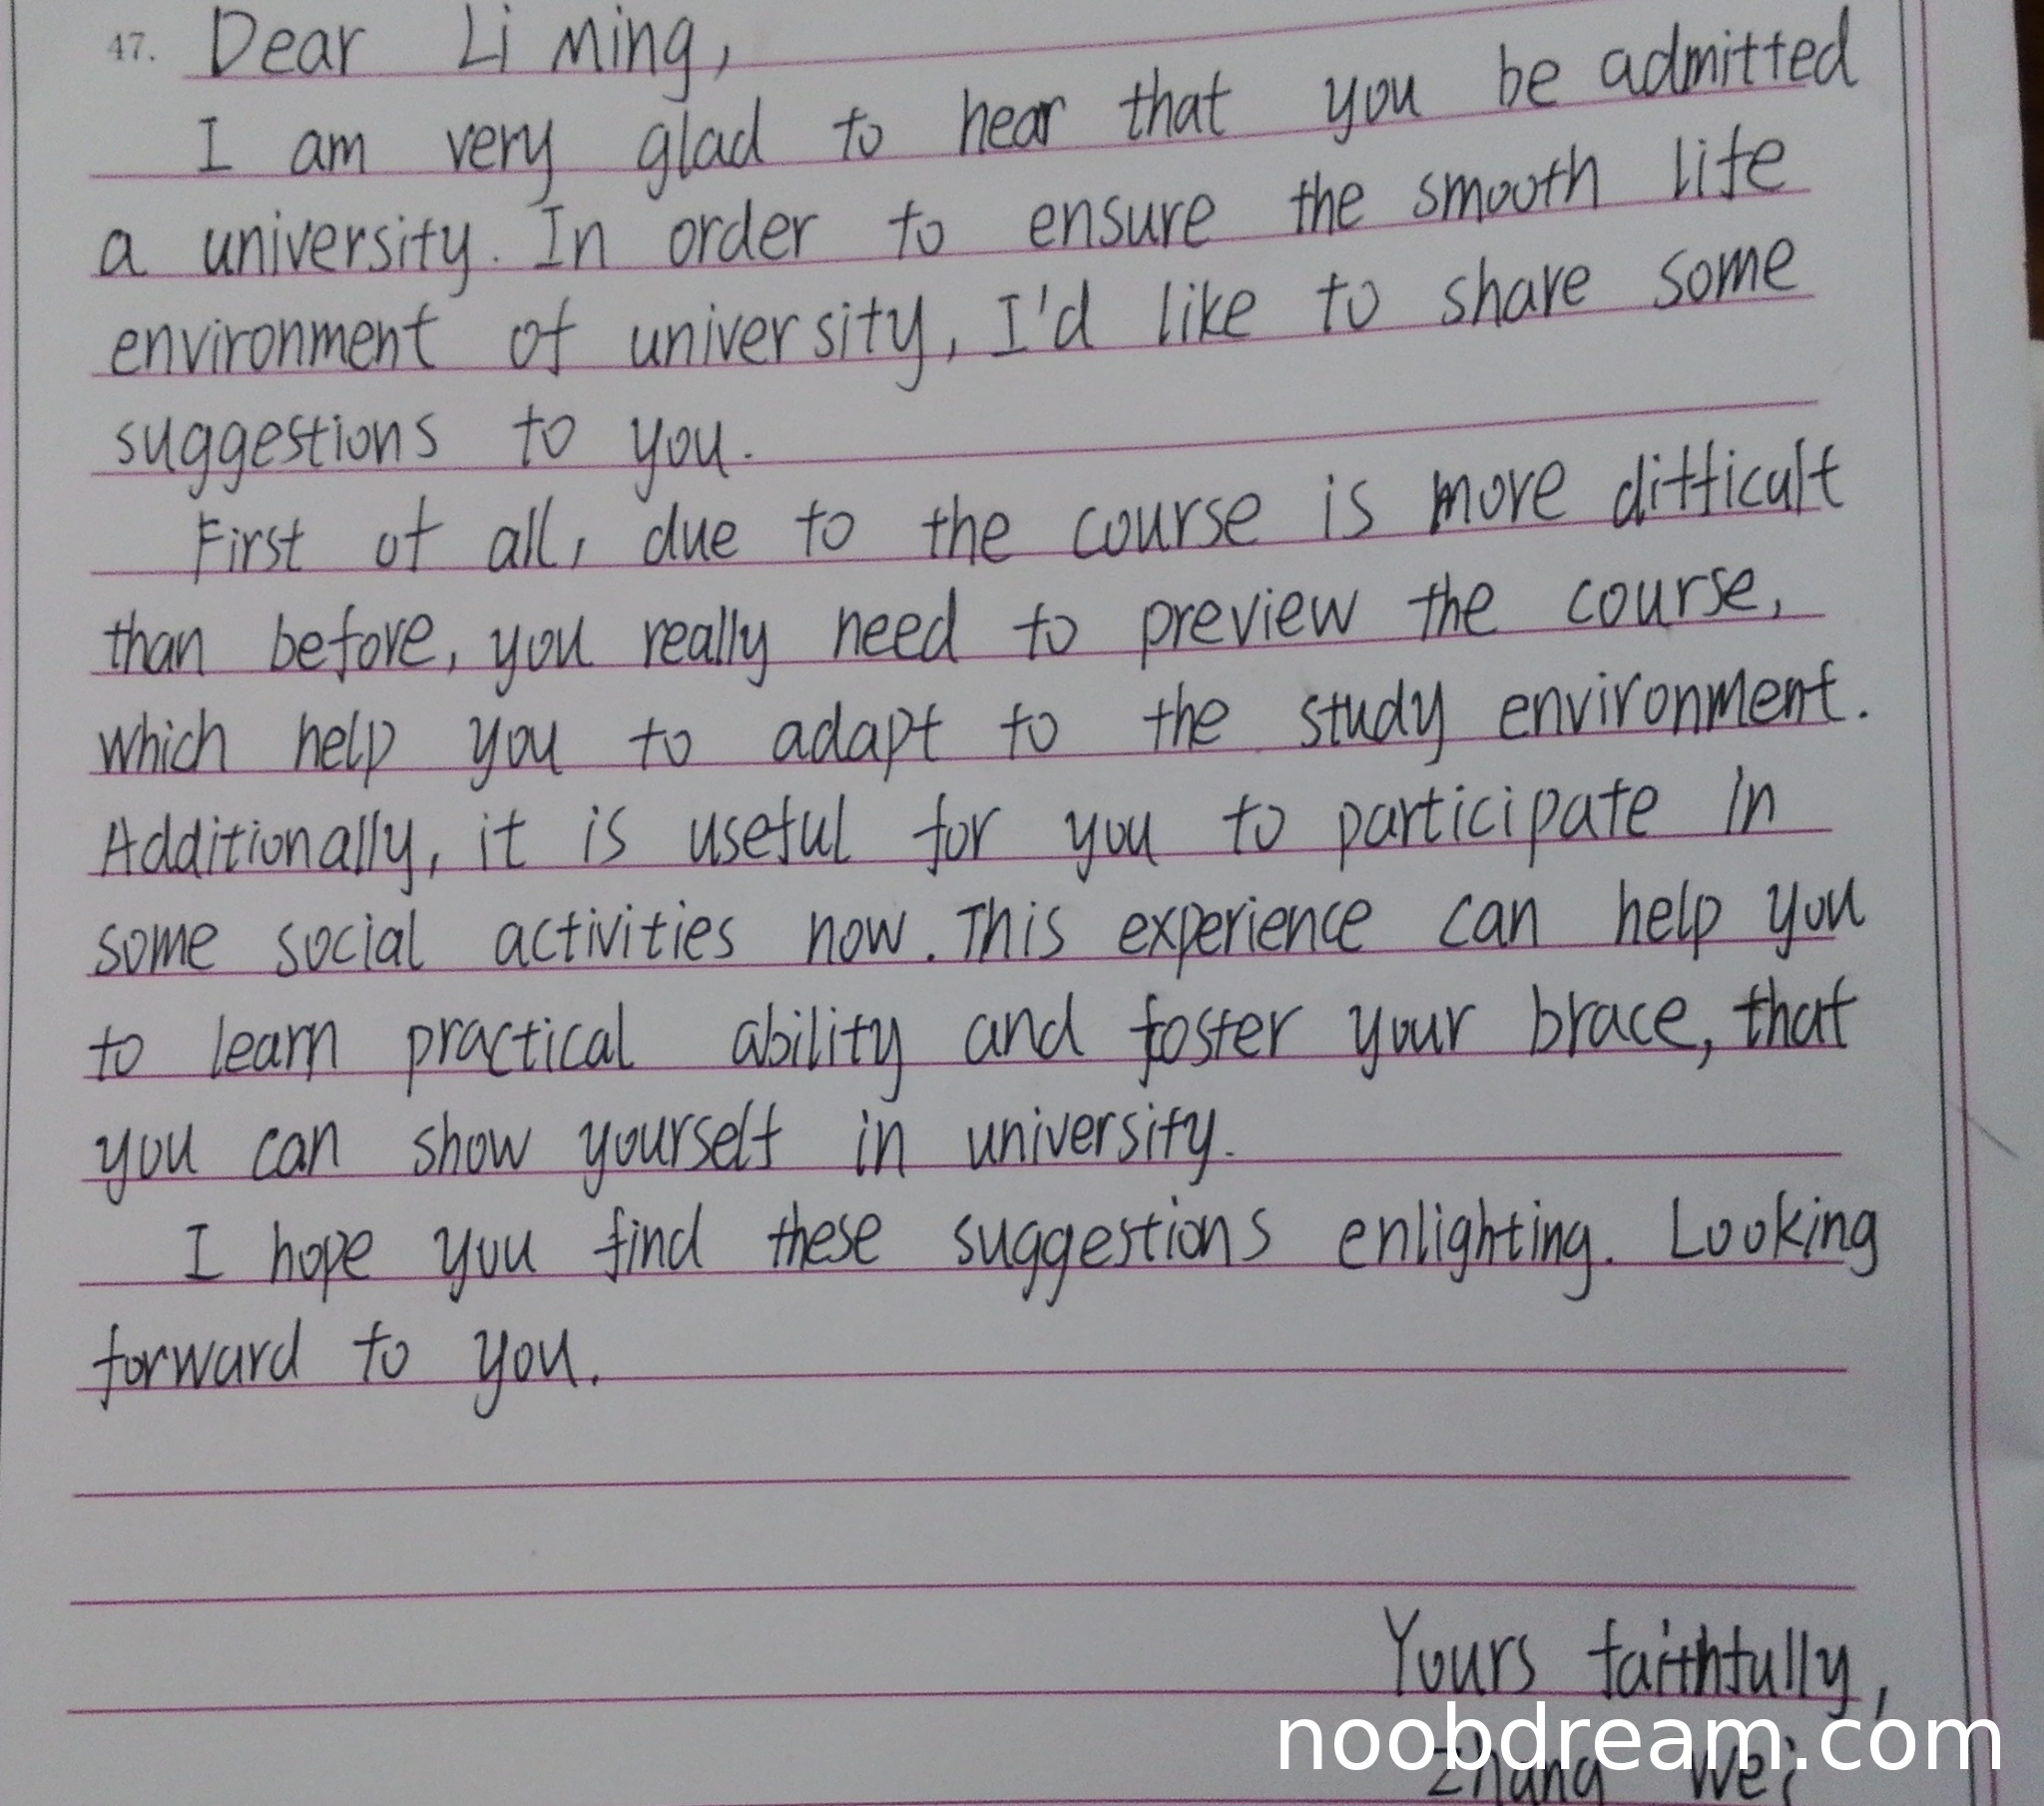 47. Dear Li Ming,
I am very glad to hear that you be admitted
a university. In order to ensure the smooth life
environment of university, I'd like to share some
suggestions to you.
First of all, due to the course is more difficult
than before, you really need to preview the course,
which help you to adapt to the study environment.
Additionally, it is useful for you to participate in
some social activities now. This experience can help you
to learn practical ability and foster your brace, that
you can show yourself in university.
I hope you find these suggestions enlighting. Looking
forward to you.
Yours faithfully,
Zhang Wei
noobdream.com